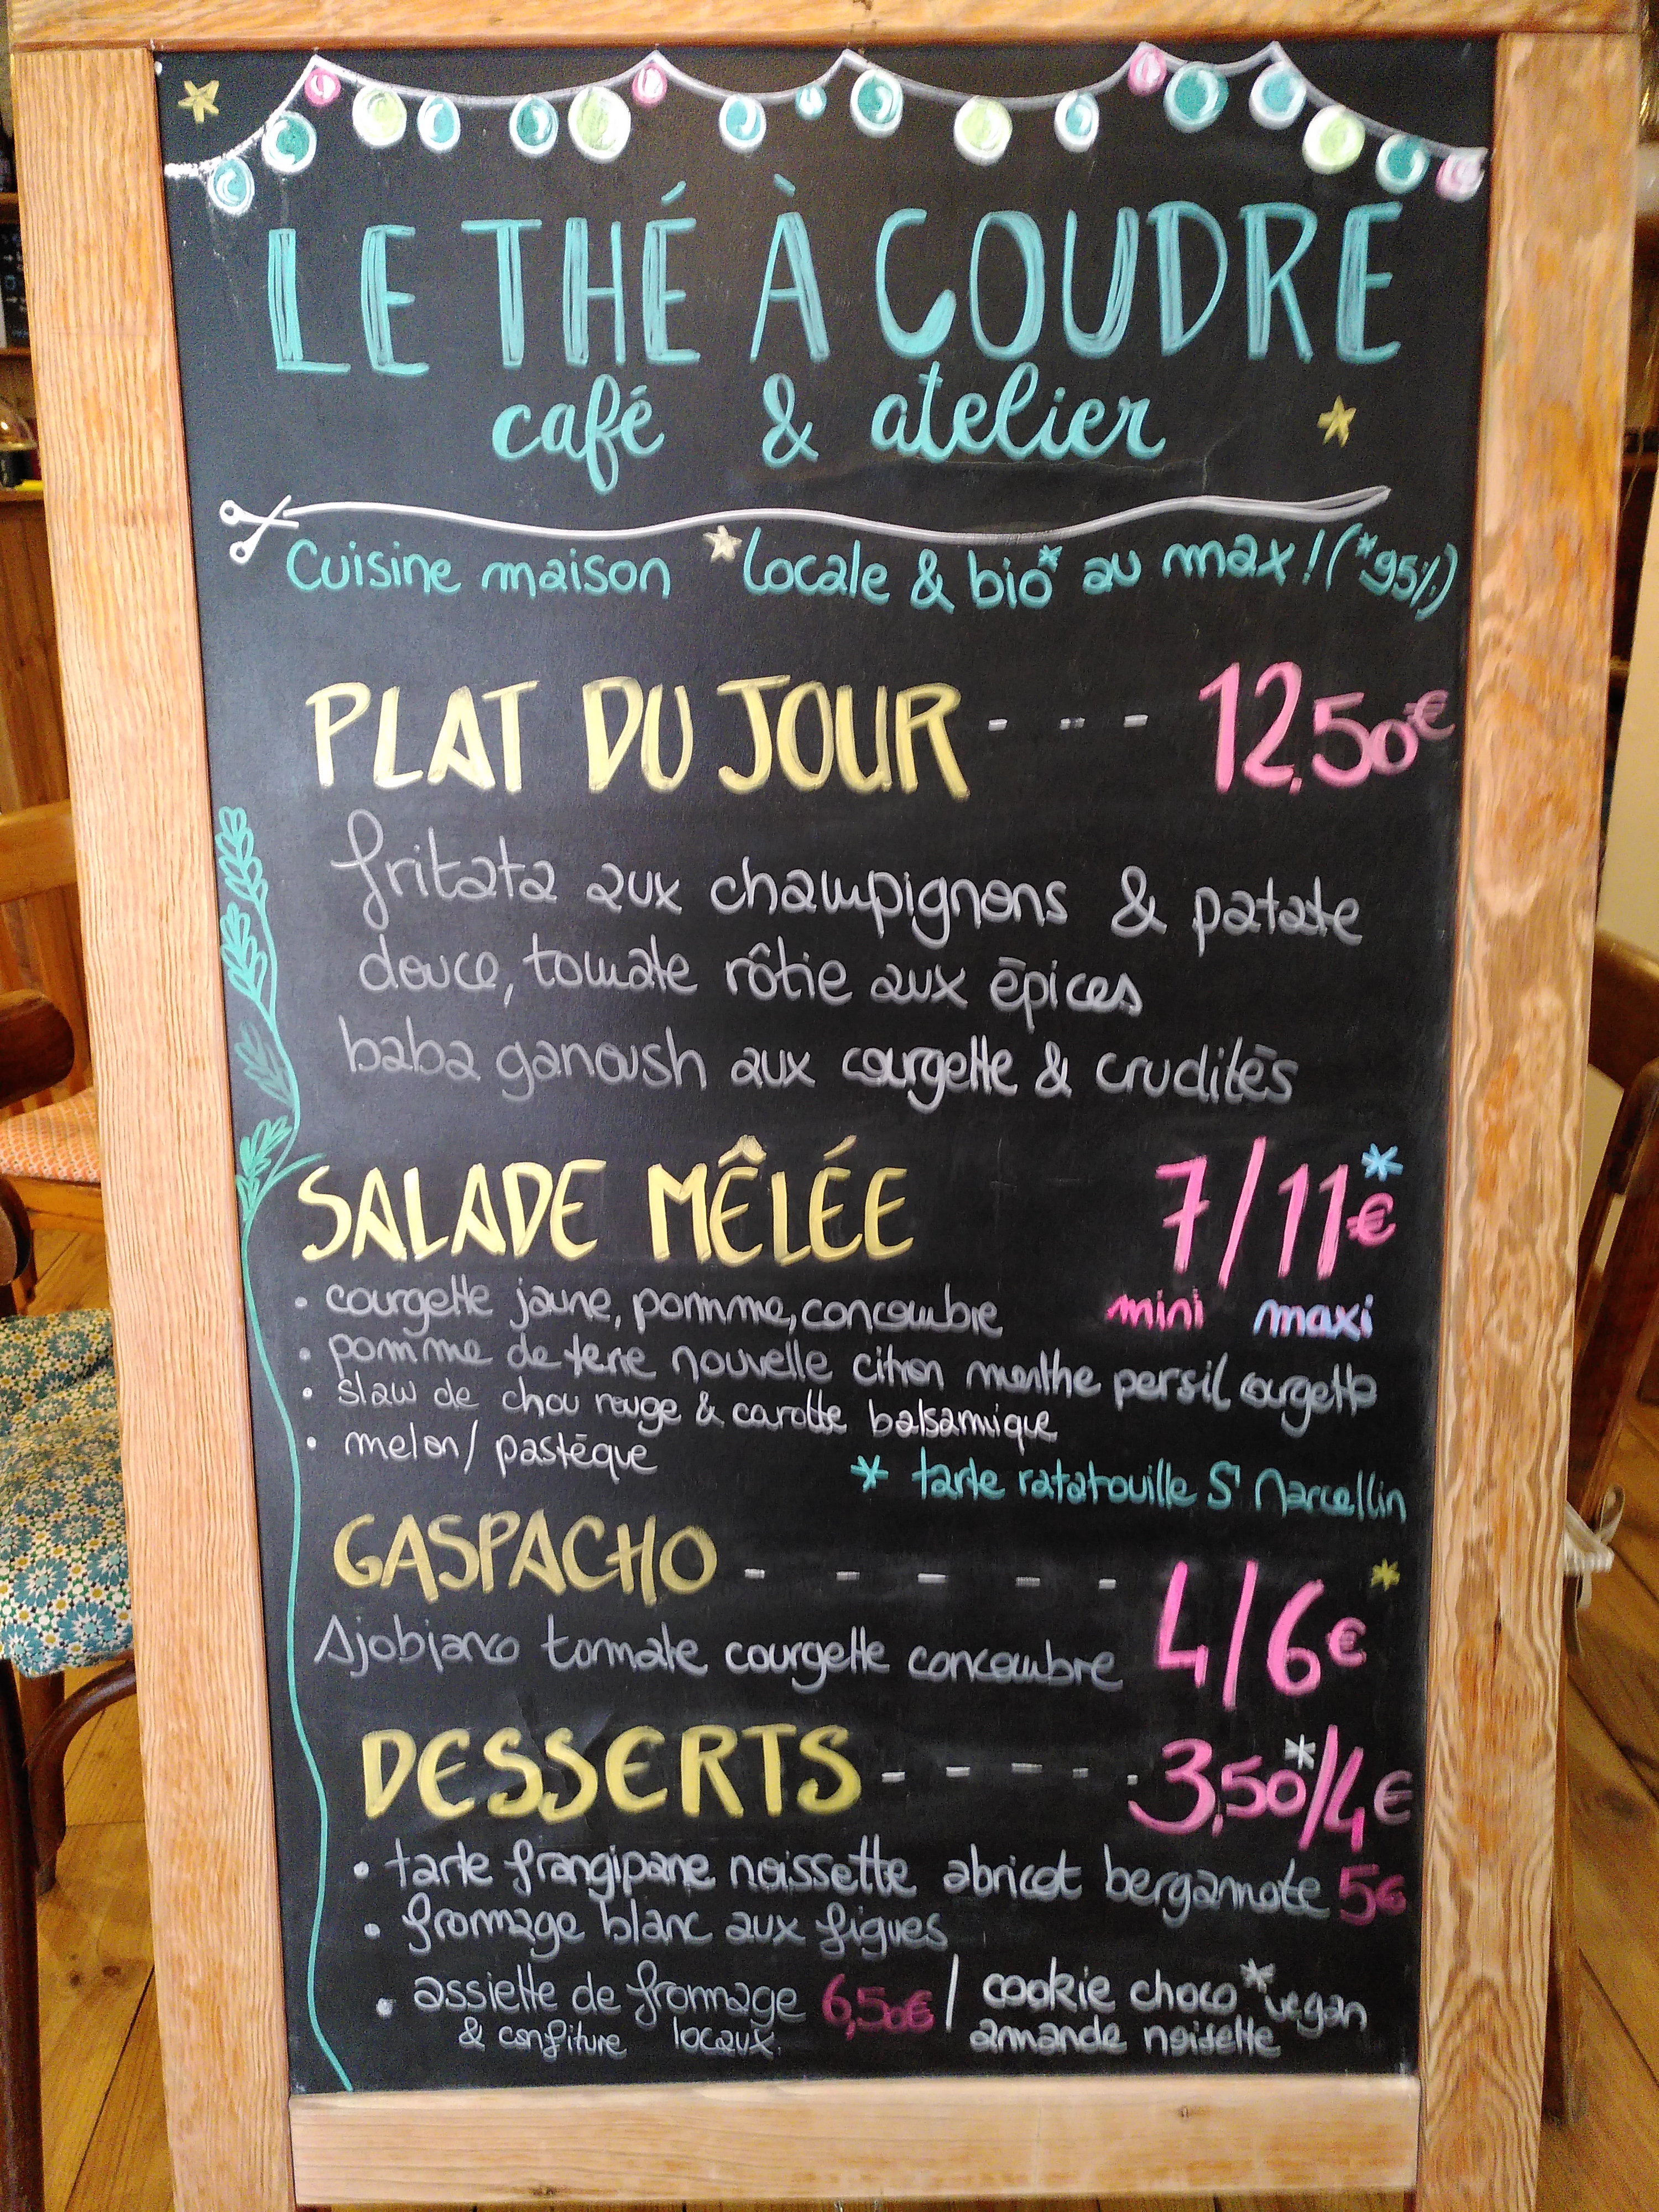 LE THÉ À COUDRE
café & atelier
Cuisine maison *locale & bio* au max ! (*95%)
PLAT DU JOUR - - - 12,50€
fritata aux champignons & patate
douce, tomate rôtie aux épices
baba ganoush aux courgette & crudités
SALADE MÊLÉE 7/11€*
mini maxi
• courgette jaune, pomme, concombre
• pomme de terre nouvelle citron menthe persil courgette
• slaw de chou rouge & carotte balsamique
• melon/pastèque
* tarte ratatouille St Marcellin
GASPACHO - - - - - 4/6€*
tomate courgette concombre
DESSERTS - - - - - 3,50*/4€
• tarte frangipane noissette abricot bergamote 5€
• fromage blanc aux figues
• assiette de fromage 6,50€ / cookie choco* vegan
& confiture locaux amande noisette